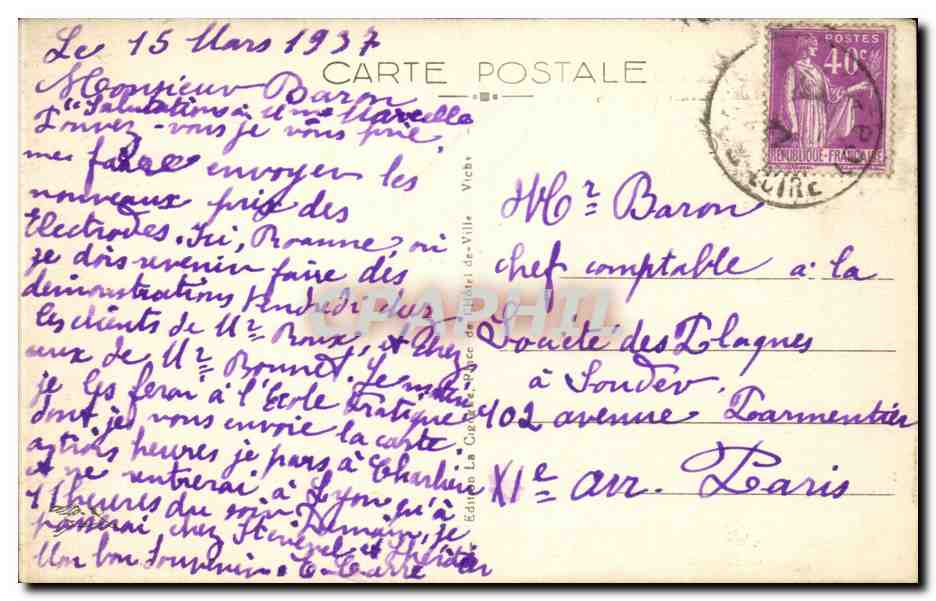 Le 15 Mars 1937
CARTE POSTALE
Monsieur Baron
"Salutations à Mme Marcelle
Pouvez-vous je vous prie,
me faire envoyer les
nouveaux prix des
Electrodes. Ici, Roanne, où
je dois revenir faire des
démonstrations Vendredi chez
les clients de Mr Roux, et chez
ceux de Mr Bonnet. Le matin
je les ferai à l'Ecole Pratique
dont je vous envoie la carte.
à trois heures je pars à Charlieu
et ne rentrerai à Lyon qu'à
11 heures du soir. Demain, je
passerai chez et
Mon bon Souvenir. E. Carré
Edition La Cigogne, Place de l'Hôtel-de-Ville Vichy
POSTES
40c
REPUBLIQUE-FRANÇAISE
LOIRE
Mr Baron
chef comptable à la
Société des Plaques
à Souder.
102 avenue Parmentier
XIe arr. Paris
CPAPHIL